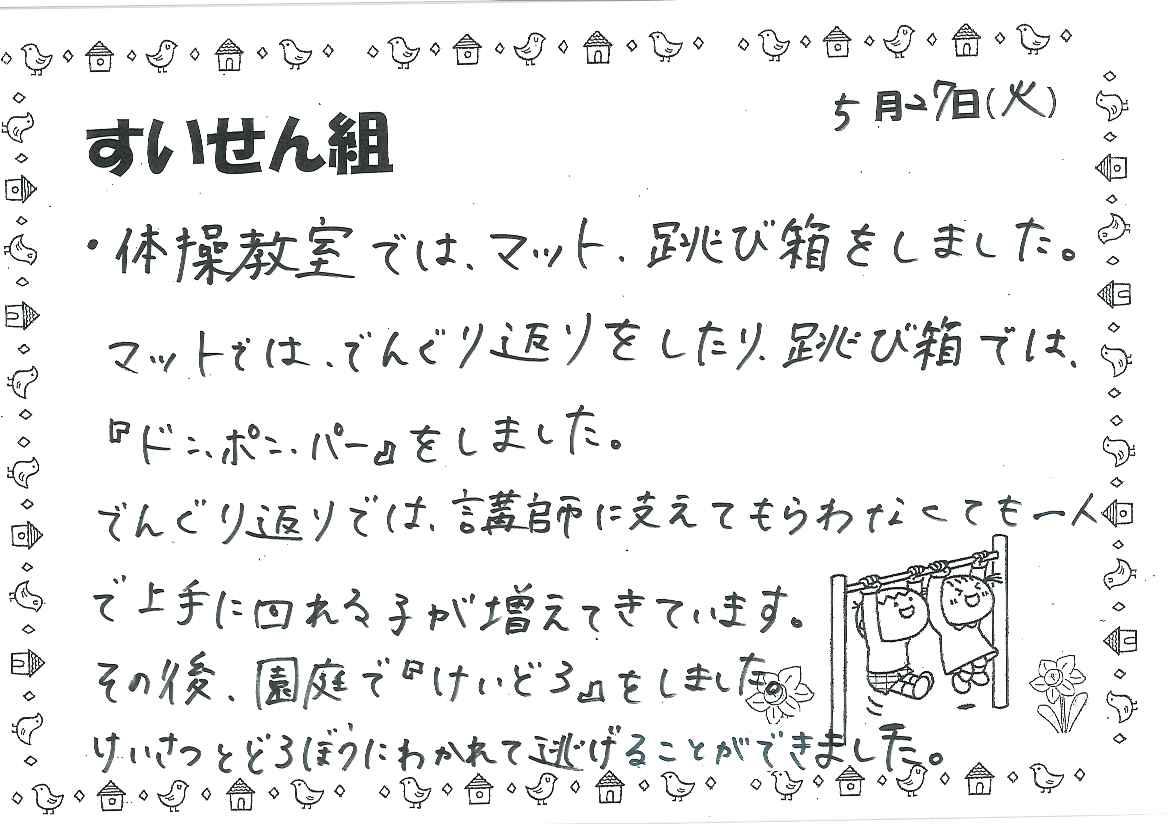 5月27日(火)
すいせん組
・体操教室では、マット、跳び箱をしました。
マットでは、でんぐり返りをしたり、跳び箱では、
『ドン、ポン、パー』をしました。
でんぐり返りでは、講師に支えてもらわなくても一人
で上手に回れる子が増えてきています。
その後、園庭で『けいどろ』をしました。
けいさつとどろぼうにわかれて逃げることができました。